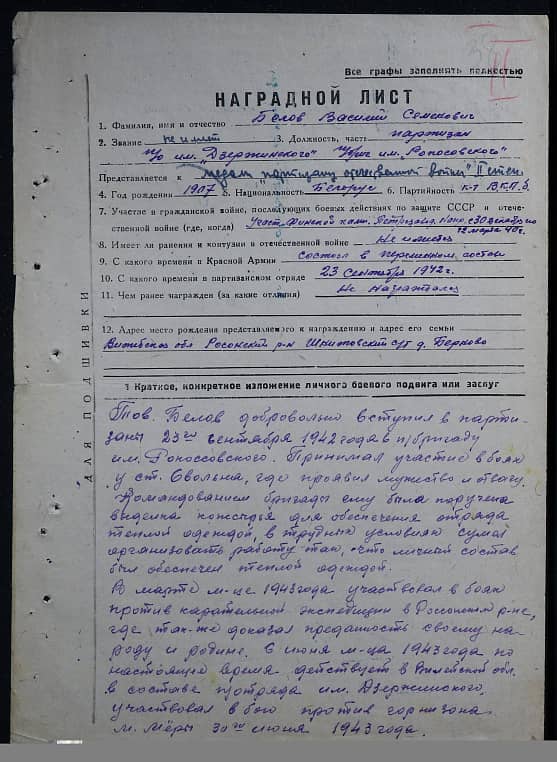 Все графы заполнять полностью
НАГРАДНОЙ ЛИСТ
1. Фамилия, имя и отчество Белов Василий Семенович
2. Звание не имеет 3. Должность, часть партизан
п/о им. „Дзержинского" п/бриг им. „Рокосовского"
Представляется к медали „партизану отечественной войны" II степ.
4. Год рождения 1907 5. Национальность Белорус 6. Партийность к-т В.К.П.б.
7. Участие в гражданской войне, последующих боевых действиях по защите СССР и отече-
ственной войне (где, когда) Участ. Финской камп. с 30 декабря по
12 марта 40 г.
8. Имеет ли ранения и контузии в отечественной войне Не имеет
9. С какого времени в Красной Армии состоял в переменном составе
10. С какого времени в партизанском отряде 23 Сентября 1942 г.
11. Чем ранее награжден (за какие отличия) Не награждался
12. Адрес место рождения представляемого к награждению и адрес его семьи
Витебская обл Росонский р-н с/с д.
1 Краткое, конкретное изложение личного боевого подвига или заслуг
Тов. Белов добровольно вступил в парти-
заны 23го сентября 1942 года в п/бригаду
им. Рокоссовского. Принимал участие в боях
у ст. Свольна, где проявил мужество и отвагу.
Командованием бригады ему была поручена
выделка для обеспечения отряда
теплой одеждой, в трудных условиях сумел
организовать работу так, что личный состав
был обеспечен теплой одеждой.
В марте м-це 1943 года участвовал в боях
против карательной экспедиции в Россонском р-не,
где так-же доказал преданность своему на-
роду и родине. С июня м-ца 1943 года по
настоящее время действует в Вилейской обл.
в составе п/отряда им. Дзержинского,
участвовал в бою против гарнизона
м. Мёры 30го июня 1943 года.
ДЛЯ ПОДШИВКИ